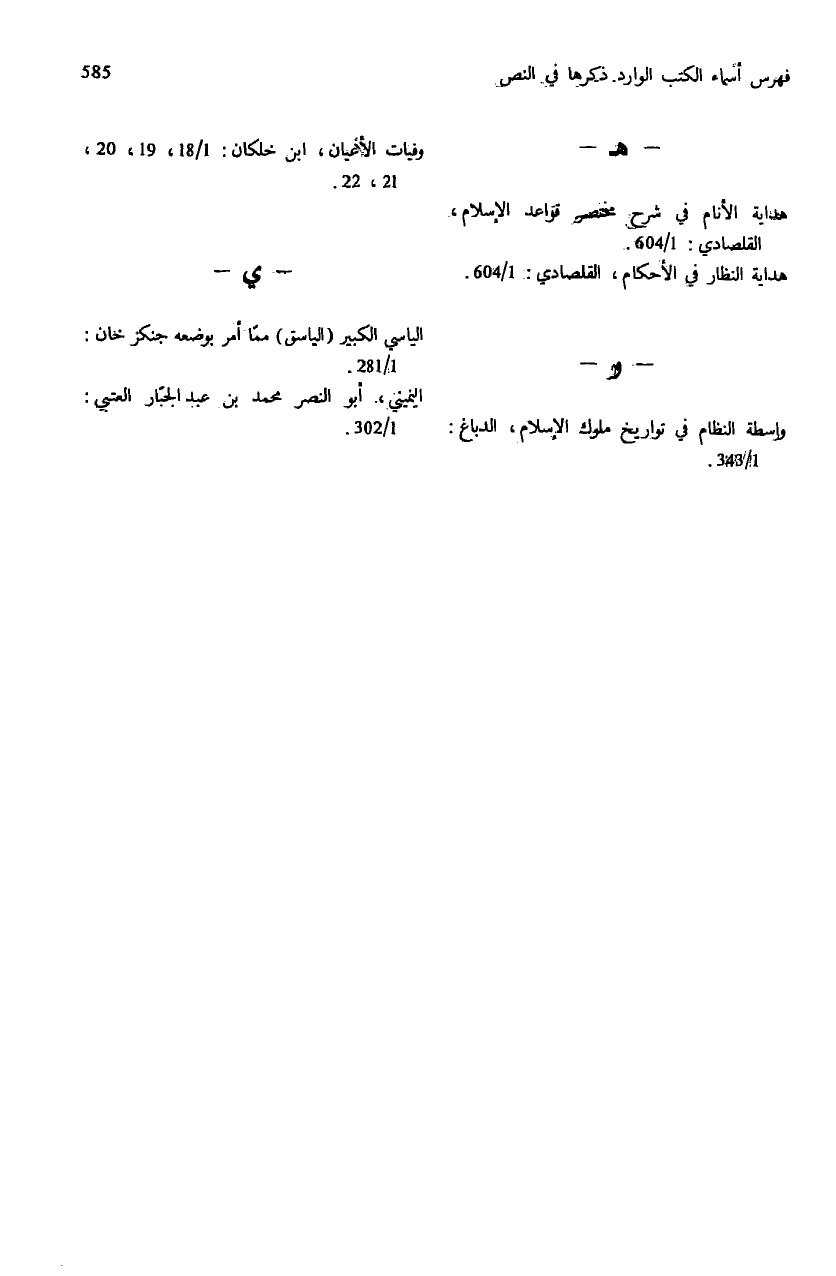 فهرس أسماء الكتب الوارد ذكرها في النص 585
— هـ —
هداية الأنام في شرح مختصر قواعد الإسلام،
القلصادي : 604/1 .
هداية النظار في الأحكام ، القلصادي : 604/1 .
— و —
واسطة النظام في تواريخ ملوك الإسلام ، الدباغ :
343/1 .
وفيات الأعيان ، ابن خلكان : 18/1 ، 19 ، 20 ،
21 ، 22 .
— ي —
الياسي الكبير (الياسق) ممّا أمر بوضعه جنكز خان :
281/1 .
اليميني ، أبو النصر محمد بن عبد الجبّار العتبي :
302/1 .